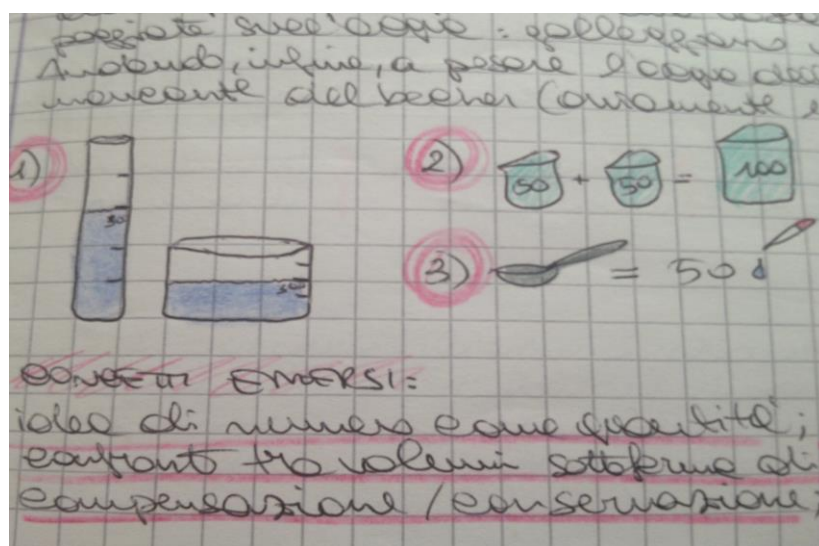 poggiate sull'acqua: galleggiano
Andando, infine, a pesare l'acqua
mancante del becher (ovviamente
1)
50
50
2) 50 + 50 = 100
3) = 50
CONCETTI EMERSI:
idea di numero come quantità;
confronto tra volumi sottoforma di
compensazione/conservazione;